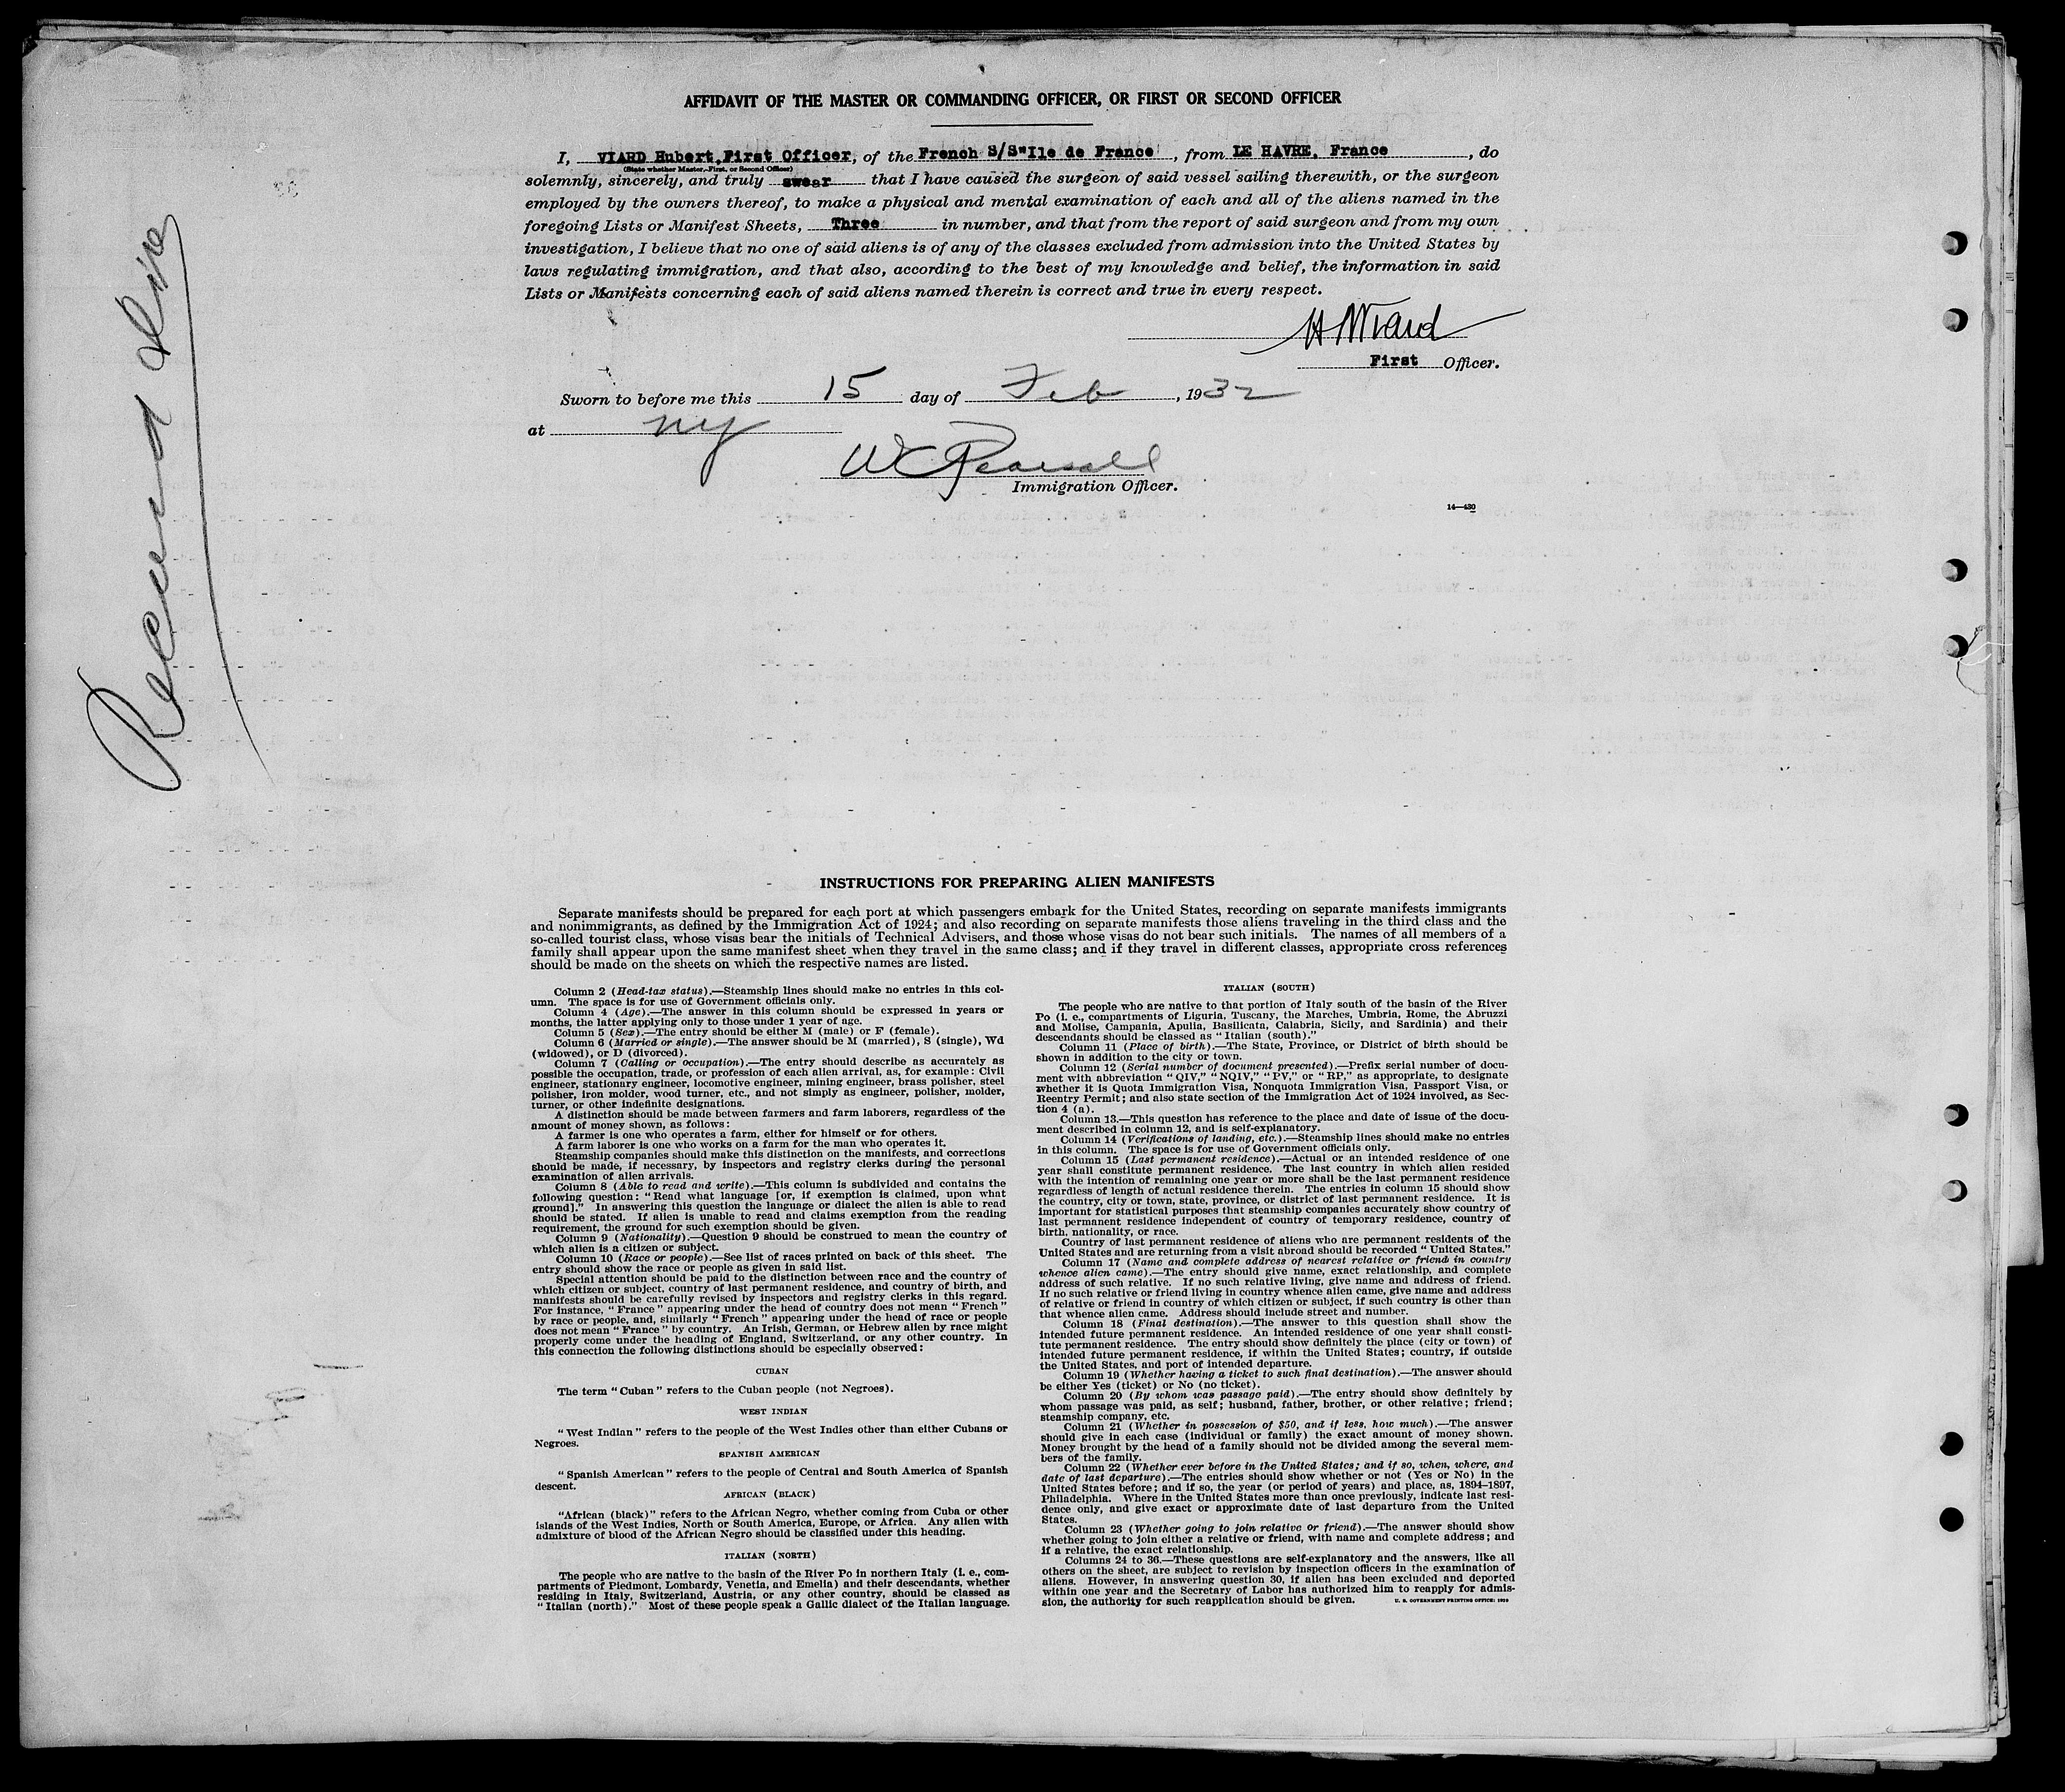 AFFIDAVIT OF THE MASTER OR COMMANDING OFFICER, OR FIRST OR SECOND OFFICER
I, VIARD Hubert,First Officer, of the French S/S"Ile de France", from LE HAVRE, France, do
(State whether Master, First, or Second Officer)
solemnly, sincerely, and truly swear that I have caused the surgeon of said vessel sailing therewith, or the surgeon
employed by the owners thereof, to make a physical and mental examination of each and all of the aliens named in the
foregoing Lists or Manifest Sheets, Three in number, and that from the report of said surgeon and from my own
investigation, I believe that no one of said aliens is of any of the classes excluded from admission into the United States by
laws regulating immigration, and that also, according to the best of my knowledge and belief, the information in said
Lists or Manifests concerning each of said aliens named therein is correct and true in every respect.
H Viard
First Officer.
Sworn to before me this 15 day of Feb, 1932
at NY
WC Pearsall
Immigration Officer.
14—430
INSTRUCTIONS FOR PREPARING ALIEN MANIFESTS
Separate manifests should be prepared for each port at which passengers embark for the United States, recording on separate manifests immigrants
and nonimmigrants, as defined by the Immigration Act of 1924; and also recording on separate manifests those aliens traveling in the third class and the
so-called tourist class, whose visas bear the initials of Technical Advisers, and those whose visas do not bear such initials. The names of all members of a
family shall appear upon the same manifest sheet when they travel in the same class; and if they travel in different classes, appropriate cross references
should be made on the sheets on which the respective names are listed.
Column 2 (Head-tax status).—Steamship lines should make no entries in this col-
umn. The space is for use of Government officials only.
Column 4 (Age).—The answer in this column should be expressed in years or
months, the latter applying only to those under 1 year of age.
Column 5 (Sex).—The entry should be either M (male) or F (female).
Column 6 (Married or single).—The answer should be M (married), S (single), Wd
(widowed), or D (divorced).
Column 7 (Calling or occupation).—The entry should describe as accurately as
possible the occupation, trade, or profession of each alien arrival, as, for example: Civil
engineer, stationary engineer, locomotive engineer, mining engineer, brass polisher, steel
polisher, iron molder, wood turner, etc., and not simply as engineer, polisher, molder,
turner, or other indefinite designations.
A distinction should be made between farmers and farm laborers, regardless of the
amount of money shown, as follows:
A farmer is one who operates a farm, either for himself or for others.
A farm laborer is one who works on a farm for the man who operates it.
Steamship companies should make this distinction on the manifests, and corrections
should be made, if necessary, by inspectors and registry clerks during the personal
examination of alien arrivals.
Column 8 (Able to read and write).—This column is subdivided and contains the
following question: "Read what language [or, if exemption is claimed, upon what
ground]." In answering this question the language or dialect the alien is able to read
should be stated. If alien is unable to read and claims exemption from the reading
requirement, the ground for such exemption should be given.
Column 9 (Nationality).—Question 9 should be construed to mean the country of
which alien is a citizen or subject.
Column 10 (Race or people).—See list of races printed on back of this sheet. The
entry should show the race or people as given in said list.
Special attention should be paid to the distinction between race and the country of
which citizen or subject, country of last permanent residence, and country of birth, and
manifests should be carefully revised by inspectors and registry clerks in this regard.
For instance, "France" appearing under the head of country does not mean "French"
by race or people, and, similarly "French" appearing under the head of race or people
does not mean "France" by country. An Irish, German, or Hebrew alien by race might
properly come under the heading of England, Switzerland, or any other country. In
this connection the following distinctions should be especially observed:
CUBAN
The term "Cuban" refers to the Cuban people (not Negroes).
WEST INDIAN
"West Indian" refers to the people of the West Indies other than either Cubans or
Negroes.
SPANISH AMERICAN
"Spanish American" refers to the people of Central and South America of Spanish
descent.
AFRICAN (BLACK)
"African (black)" refers to the African Negro, whether coming from Cuba or other
islands of the West Indies, North or South America, Europe, or Africa. Any alien with
admixture of blood of the African Negro should be classified under this heading.
ITALIAN (NORTH)
The people who are native to the basin of the River Po in northern Italy (i. e., com-
partments of Piedmont, Lombardy, Venetia, and Emelia) and their descendants, whether
residing in Italy, Switzerland, Austria, or any other country, should be classed as
"Italian (north)." Most of these people speak a Gallic dialect of the Italian language.
ITALIAN (SOUTH)
The people who are native to that portion of Italy south of the basin of the River
Po (i. e., compartments of Liguria, Tuscany, the Marches, Umbria, Rome, the Abruzzi
and Molise, Campania, Apulia, Basilicata, Calabria, Sicily, and Sardinia) and their
descendants should be classed as "Italian (south)."
Column 11 (Place of birth).—The State, Province, or District of birth should be
shown in addition to the city or town.
Column 12 (Serial number of document presented).—Prefix serial number of docu-
ment with abbreviation "QIV," "NQIV," "PV," or "RP," as appropriate, to designate
whether it is Quota Immigration Visa, Nonquota Immigration Visa, Passport Visa, or
Reentry Permit; and also state section of the Immigration Act of 1924 involved, as Sec-
tion 4 (a).
Column 13.—This question has reference to the place and date of issue of the docu-
ment described in column 12, and is self-explanatory.
Column 14 (Verifications of landing, etc.).—Steamship lines should make no entries
in this column. The space is for use of Government officials only.
Column 15 (Last permanent residence).—Actual or an intended residence of one
year shall constitute permanent residence. The last country in which alien resided
with the intention of remaining one year or more shall be the last permanent residence
regardless of length of actual residence therein. The entries in column 15 should show
the country, city or town, state, province, or district of last permanent residence. It is
important for statistical purposes that steamship companies accurately show country of
last permanent residence independent of country of temporary residence, country of
birth, nationality, or race.
Country of last permanent residence of aliens who are permanent residents of the
United States and are returning from a visit abroad should be recorded "United States."
Column 17 (Name and complete address of nearest relative or friend in country
whence alien came).—The entry should give name, exact relationship, and complete
address of such relative. If no such relative living, give name and address of friend.
If no such relative or friend living in country whence alien came, give name and address
of relative or friend in country of which citizen or subject, if such country is other than
that whence alien came. Address should include street and number.
Column 18 (Final destination).—The answer to this question shall show the
intended future permanent residence. An intended residence of one year shall consti-
tute permanent residence. The entry should show definitely the place (city or town) of
intended future permanent residence, if within the United States; country, if outside
the United States, and port of intended departure.
Column 19 (Whether having a ticket to such final destination).—The answer should
be either Yes (ticket) or No (no ticket).
Column 20 (By whom was passage paid).—The entry should show definitely by
whom passage was paid, as self; husband, father, brother, or other relative; friend;
steamship company, etc.
Column 21 (Whether in possession of $50, and if less, how much).—The answer
should give in each case (individual or family) the exact amount of money shown.
Money brought by the head of a family should not be divided among the several mem-
bers of the family.
Column 22 (Whether ever before in the United States; and if so, when, where, and
date of last departure).—The entries should show whether or not (Yes or No) in the
United States before; and if so, the year (or period of years) and place, as, 1894–1897,
Philadelphia. Where in the United States more than once previously, indicate last resi-
dence only, and give exact or approximate date of last departure from the United
States.
Column 23 (Whether going to join relative or friend).—The answer should show
whether going to join either a relative or friend, with name and complete address; and
if a relative, the exact relationship.
Columns 24 to 36.—These questions are self-explanatory and the answers, like all
others on the sheet, are subject to revision by inspection officers in the examination of
aliens. However, in answering question 30, if alien has been excluded and deported
within one year and the Secretary of Labor has authorized him to reapply for admis-
sion, the authority for such reapplication should be given.
U. S. GOVERNMENT PRINTING OFFICE: 1930